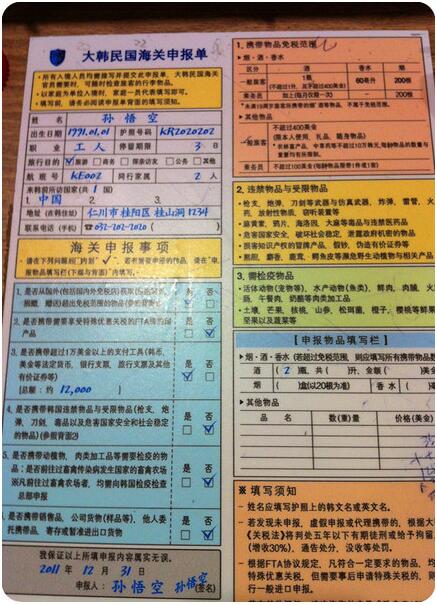 大韩民国海关申报单
• 所有入境人员均需填写并提交此申报单，大韩民国海关
官员需要时，可随时检查旅客的行李物品。
• 以家庭为单位入境时，家庭一员代表填写即可。
• 填写前，请务必阅读申报单背面的填写须知。
姓 名 孙悟空
出生日期 1991.01.01 护照号码 KR2020202
职 业 工人 停留期限 3 日
旅行目的 旅游 商务 探亲访友 公务 其他
航班号 KE002 同行家属 2 人
来韩前所访国家(共 1 国)
1. 中国 2. 3.
地址 (在韩住址) 仁川市桂阳区 桂山洞 1234
联系电话 (手机) ☎ 032-202-2020 ( )
海关申报事项
- 请在下列问题框“□”内划“✓”，若有需要申报的物品，请在“申
报物品填写栏(下端与背面)”内填写。-
1. 是否从国外(包括国内外免税店)获取(包括购买、
捐赠、赠送)超出免税范围的物品(参照背面1)
是 否
2. 是否携带需要享受特殊优惠关税的FTA缔约国
产品
是 否
3. 是否携带超过1万美金以上的支付工具(韩币、
美金等法定货币、银行支票、旅行支票及其他
有价证券等)
[总额：约 12,000 ]
是 否
4. 是否携带韩国违禁物品与受限物品(枪支、炮
弹、刀剑、毒品以及危害国家安全和社会稳定
的物品)(参照背面2)
是 否
5. 是否携带动植物、肉类加工品等需要检疫的物
品；是否前往过畜禽传染病发生国家的畜禽农场
※凡前往过畜禽农场者，均需向韩国检疫检查
总部申报
是 否
6. 是否携带销售品，公司货物(样品等)，他人委
托携带品，寄存或暂准进出口货物
是 否
我保证以上所填申报内容属实无误。
2011 年 12 月 31 日
申报人： 孙悟空 孙悟空 (签名)
1. 携带物品免税范围
• 烟 · 酒 · 香水
区分 酒 香水 烟
一般旅客 1瓶
(不超过1升，且不超过400美金) 60毫升 200根
乘务员 200根
• 其他物品
一般旅客
不超过400美金
(限本人使用、礼品、随身物品)
2. 违禁物品与受限物品
• 枪支、炮弹、刀剑等武器与仿真武器、炸弹、雷管、火
药、放射性物质、窃听装置等
• 麻黄素、鸦片、海洛因、大麻等毒品与违害医药品
• 危害国家安全、破坏社会稳定、泄露政府机密的物品
• 损害知识产权的冒牌产品、假钞、伪造有价证券等
• 熊胆、麝香、鹿茸、鳄鱼皮等濒危野生动植物与相关产品
3. 需检疫物品
• 活体动物(宠物等)、水产动物(鱼类)、鲜肉、肉脯、火
肠、午餐肉、奶酪等肉类加工品
• 土壤、芒果、核桃、山参、松茸菌、橙子、樱桃等鲜果
坚果以及蔬菜等
[申报物品填写栏]
• 烟 · 酒 · 香水 (若超过免税范围，则应填写所有携带物品数
酒 ( 2 )瓶，共( )升、金额 ( )美金
烟 ( )盒(以20根为准) 香水 ( )毫
• 其他物品
品 名 数(重)量 价格(美金)
※ 填写须知
- 姓名应填写护照上的韩文名或英文名。
- 若发现未申报、虚假申报或代理携带的，根据大
《关税法》将判处五年以下有期徒刑或给予拘留、
(增收30%)、通告处分、没收等处罚。
- 根据FTA协议规定，凡符合一定要求的物品，均
特殊优惠关税，但需要事后申请特殊关税的，则
行一般进口申报。